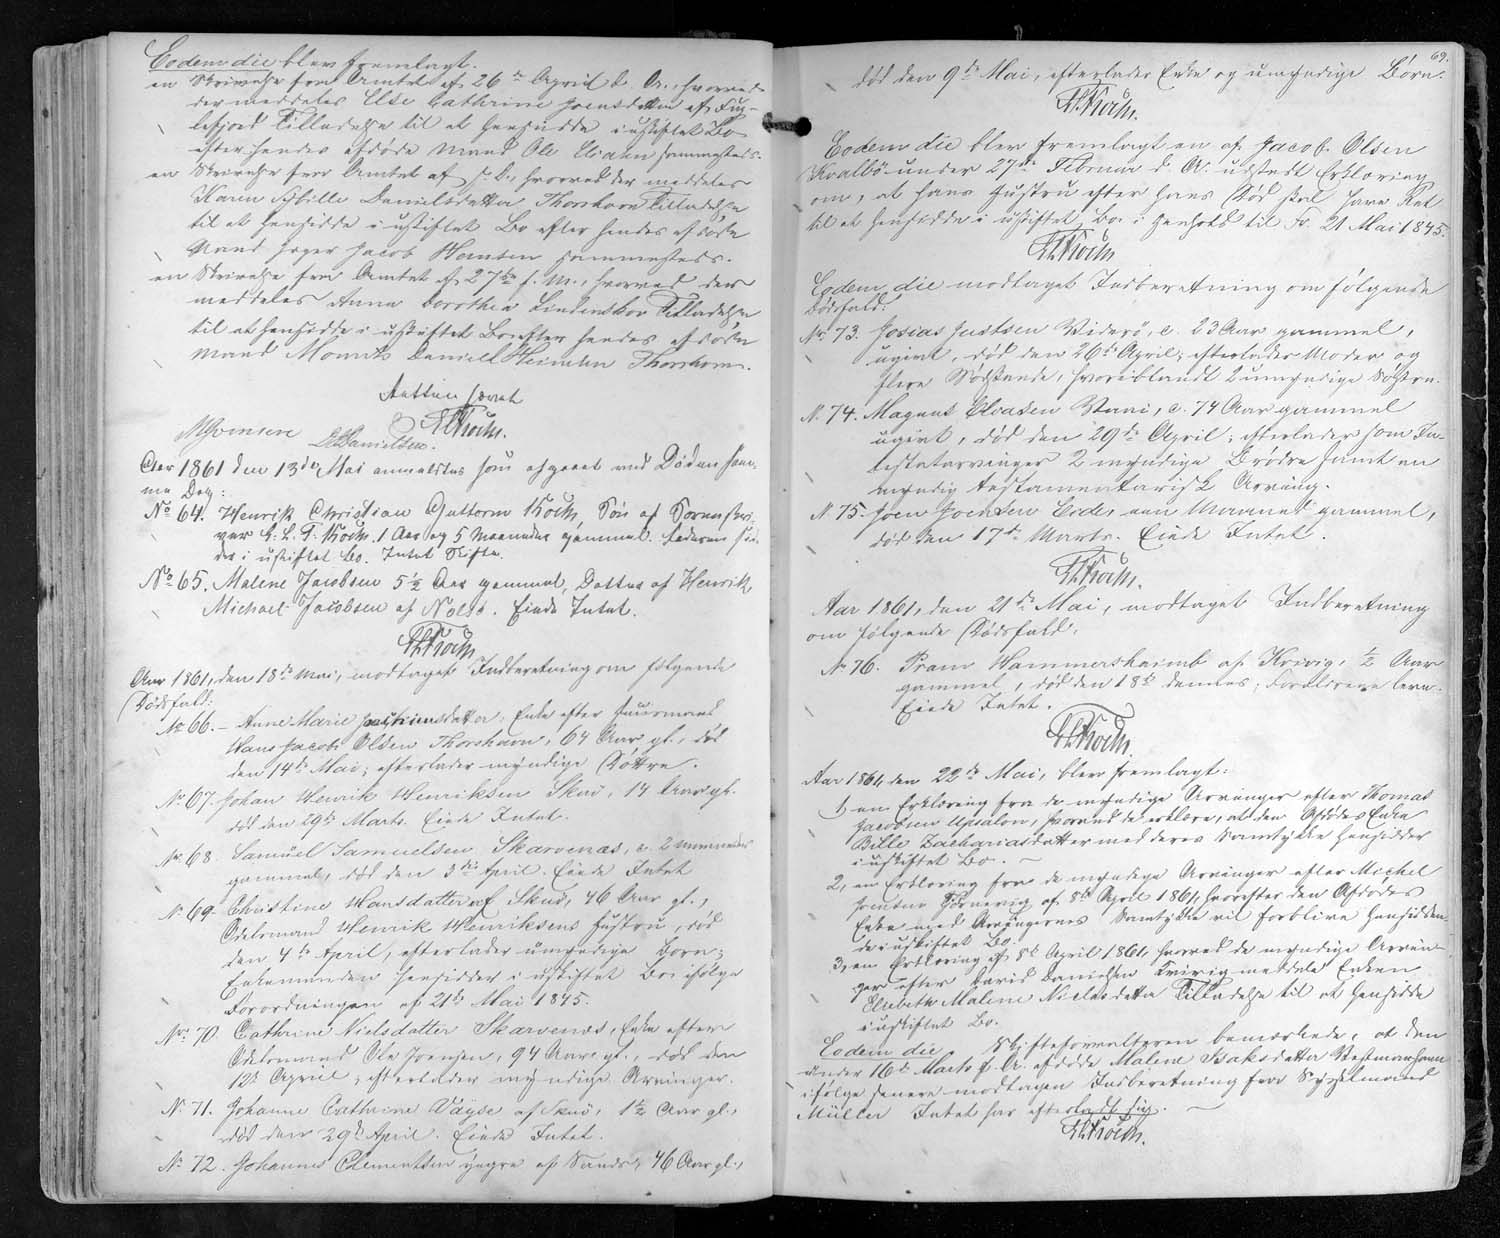 Eodem die blev fremlagt.
en Skrivelse fra Amtet af 26de April d. A., hvorved
der meddeles Else Cathrine Joensdatter af Fug-
lefjord Tilladelse til at hensidde i uskiftet Bo
efter hendes afdøde Mand Ole sammesteds.
en Skrivelse fra Amtet af s. D., hvorved der meddeles
Karen Sibille Danielsdatter Thorshavn Tilladelse
til at hensidde i uskiftet Bo efter hendes afdøde
Mand Jacob Hansen sammesteds.
en Skrivelse fra Amtet af 27de f. M., hvorved der
meddeles Anna Dorothea Lindenskov Tilladelse
til at hensidde i uskiftet Bo efter hendes afdøde
Mand Mourits Daniel Heinesen Thorshavn.
Retten hævet
HKoch.
MJoensen DDanielsen.
Aar 1861 den 13de Mai anmeldtes som afgaaet ved Døden sam-
me Dag:
No 64. Henrik Christian Guttorm Koch, Søn af Sorenskri-
ver H. C. T. Koch. 1 Aar og 5 Maaneder gammel. Faderen sid-
der i uskiftet Bo. Intet Skifte.
No 65. Malene Jacobsen 5½ Aar gammel, Datter af Henrik
Michael Jacobsen af Nolsø. Eiede Intet.
HKoch
Aar 1861, den 18de Mai, modtaget Indberetning om følgende
Dødsfald:
No 66. - Anne Marie Joensdatter, Enke efter Huusmand
Hans Jacob Olsen Thorshavn, 64 Aar gl., død
den 14de Mai; efterlader myndige Døttre.
No 67. Johan Henrik Henriksen Skuø, 14 Aar gl.
død den 29de Marts. Eiede Intet.
No 68 Samuel Samuelsen Skarvenæs, c. 2 maaneder
gammel, død den 3die April. Eiede Intet
No 69. Christine Hansdatter af Skuø, 46 Aar gl.,
Odelsmand Henrik Henriksens Hustru, død
den 4de April, efterlader umyndige Børn;
Enkemanden hensidder i uskiftet Bo ifølge
Forordningen af 21de Mai 1845.
No 70. Cathrine Nielsdatter Skarvenæs, Enke efter
Odelsmand Ole Joensen, 94 Aar gl., død den
12de April; efterlader myndige Arvinger.
No 71. Johanne Cathrine Vayse af Skuø, 1½ Aar gl.,
død den 29de April. Eiede Intet.
No 72. Johannes Clementsen yngre af Sands, 46 Aar gl.,
69.
død den 9de Mai, efterlader Enke og umyndige Børn.
HKoch.
Eodem die blev fremlagt en af Jacob Olsen
Kvalbø under 27de Februar d. A. udstedt Erklæring
om, at hans Hustru efter hans Død skal have Ret
til at hensidde i uskiftet Bo i Henhold til Fr. 21 Mai 1845.
HKoch
Eodem die modtaget Indberetning om følgende
Dødsfald:
No 73. Josias Justsen Viderø, c. 23 Aar gammel,
ugivt, død den 26de April; efterlader Moder og
flere Sødskende, hvoriblandt 2 umyndige Søstre.
No 74. Magnus Eliasen Vaai, c. 74 Aar gammel
ugivt, død den 29de April; efterlader som In-
testatarvinger 2 myndige Brødre samt en
myndig testamentarisk Arving.
No 75. Joen Joensen Eide, een Maaned gammel,
død den 17de Marts. Eiede Intet.
HKoch.
Aar 1861, den 21de Mai, modtaget Indberetning
om følgende Dødsfald:
No 76. Frants Hammershaimb af Kvivig, ½ Aar
gammel, død den 18de dennes; Forældrene leve.
Eiede Intet.
HKoch.
Aar 1861, den 22de Mai, blev fremlagt:
1, en Erklæring fra de myndige Arvinger efter Thomas
Jacobsen Upsalon, hvorved de erklære, at den Afdødes Enke
Bille Zachariasdatter med deres Samtykke hensidder
i uskiftet Bo. -
2, en Erklæring fra de myndige Arvinger efter Michel
Joensen Tjørnevig af 8de April 1861, hvorefter den Afdødes
Enke med Arvingernes Samtykke vil forblive hensidden-
de i uskiftet Bo.
3, en Erklæring af 8de April 1861, hvorved de myndige Arvin-
ger efter David Danielsen Kvivig meddele Enken
Elsebeth Malene Niclasdatter Tilladelse til at hensidde
i uskiftet Bo.
Eodem die. Skifteforvalteren bemærkede, at den
under 16de Marts d. A. afdøde Malene Isaksdatter Vestmanhavn
ifølge senere modtagen Indberetning fra Sysselmand
Müller Intet har efterladt sig. -
HKoch.